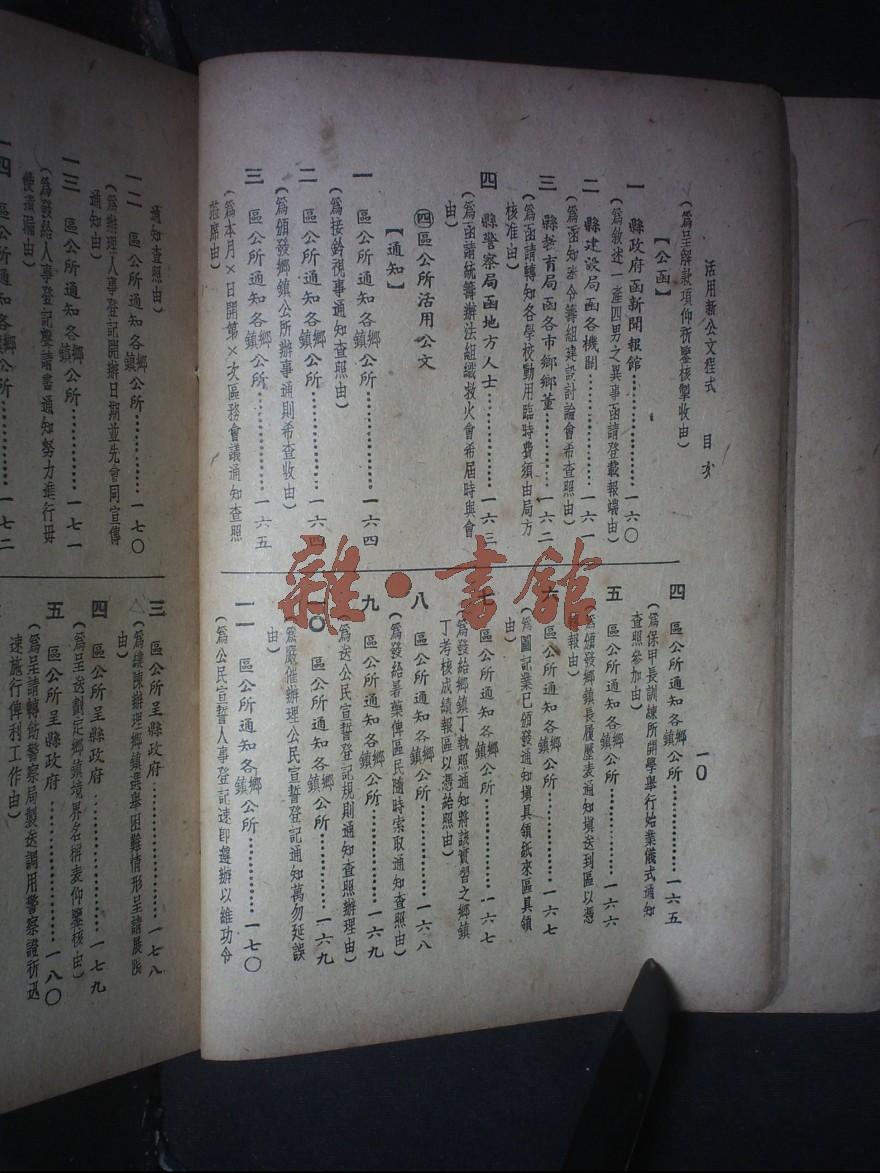 活用新公文程式 目次
一〇
（爲呈解款項仰祈鑒核掣收由）
【公函】
一 縣政府函新聞報館……一六〇
（爲敘述一產四男之異事函請登載報端由）
二 縣建設局函各機關……一六一
（爲函知奉令籌組建設討論會希查照由）
三 縣教育局函各市鄉鄉董……一六二
（爲函請轉知各學校動用臨時費須由局方
核准由）
四 縣警察局函地方人士……一六三
（爲函請統籌辦法組織救火會希屆時與會
由）
㈣區公所活用公文
【通知】
一 區公所通知各鄉鎮公所……一六四
（爲接鈐視事通知查照由）
二 區公所通知各鄉鎮公所……一六四
（爲頒發鄉鎮公所辦事通則希查收由）
三 區公所通知各鄉鎮公所……一六五
（爲本月×日開第×次區務會議通知查照
蒞席由）
四 區公所通知各鄉鎮公所……一六五
（爲保甲長訓練所開學舉行始業儀式通知
查照參加由）
五 區公所通知各鄉鎮公所……一六六
（爲頒發鄉鎮長履歷表通知塡送到區以憑
報由）
六 區公所通知各鄉鎮公所……一六七
（爲圖記業已頒發通知塡具領紙來區具領
由）
七 區公所通知各鄉鎮公所……一六七
（爲發給鄉鎮丁執照通知將該實習之鄉鎮
丁考核成績報區以憑給照由）
八 區公所通知各鄉鎮公所……一六八
（爲發給暑藥俾區民隨時索取通知查照由）
九 區公所通知各鄉鎮公所……一六九
（爲送公民宣誓登記規則通知查照辦理由）
一〇 區公所通知各鄉鎮公所……一六九
（爲嚴催辦理公民宣誓登記通知萬勿延誤
由）
一一 區公所通知各鄉鎮公所……一七〇
（爲公民宣誓人事登記速卽遵辦以維功令
通知查照由）
一二 區公所通知各鄉鎮公所……一七〇
（爲辦理人事登記開辦日期並先會同宣傳
通知由）
一三 區公所通知各鄉鎮公所……一七一
（爲發給人事登記聲請書通知努力進行毋
使遺漏由）
一四 區公所通知各鄉鎮公所……一七二
三 區公所呈縣政府……一七八
（爲縷陳辦理鄉鎮選舉困難情形呈請展限
由）
四 區公所呈縣政府……一七九
（爲呈送劃定鄉鎮境界名稱表仰鑒核由）
五 區公所呈縣政府……一八〇
（爲呈請轉飭警察局製送調用警察證祈迅
速施行俾利工作由）
雜·書館